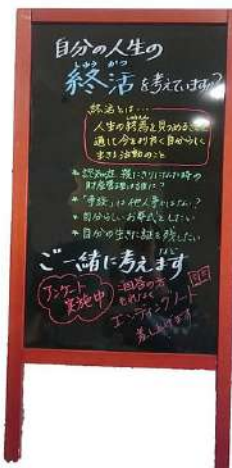 自分の人生の
しゅう かつ
終活を考えていますか?
終活とは…
人生の終焉を見つめることを
通して今をより良く自分らしく
生きる活動のこと
* 認知症、寝たきりになった時の
財産管理は誰に?
* 「争族」は他人事ではない?
* 自分らしいお葬式をしたい
* 自分の生きた証を残したい
ご一緒に考えます
アンケート
実施中
回答の方
もれなく
エンディングノート
差し上げます